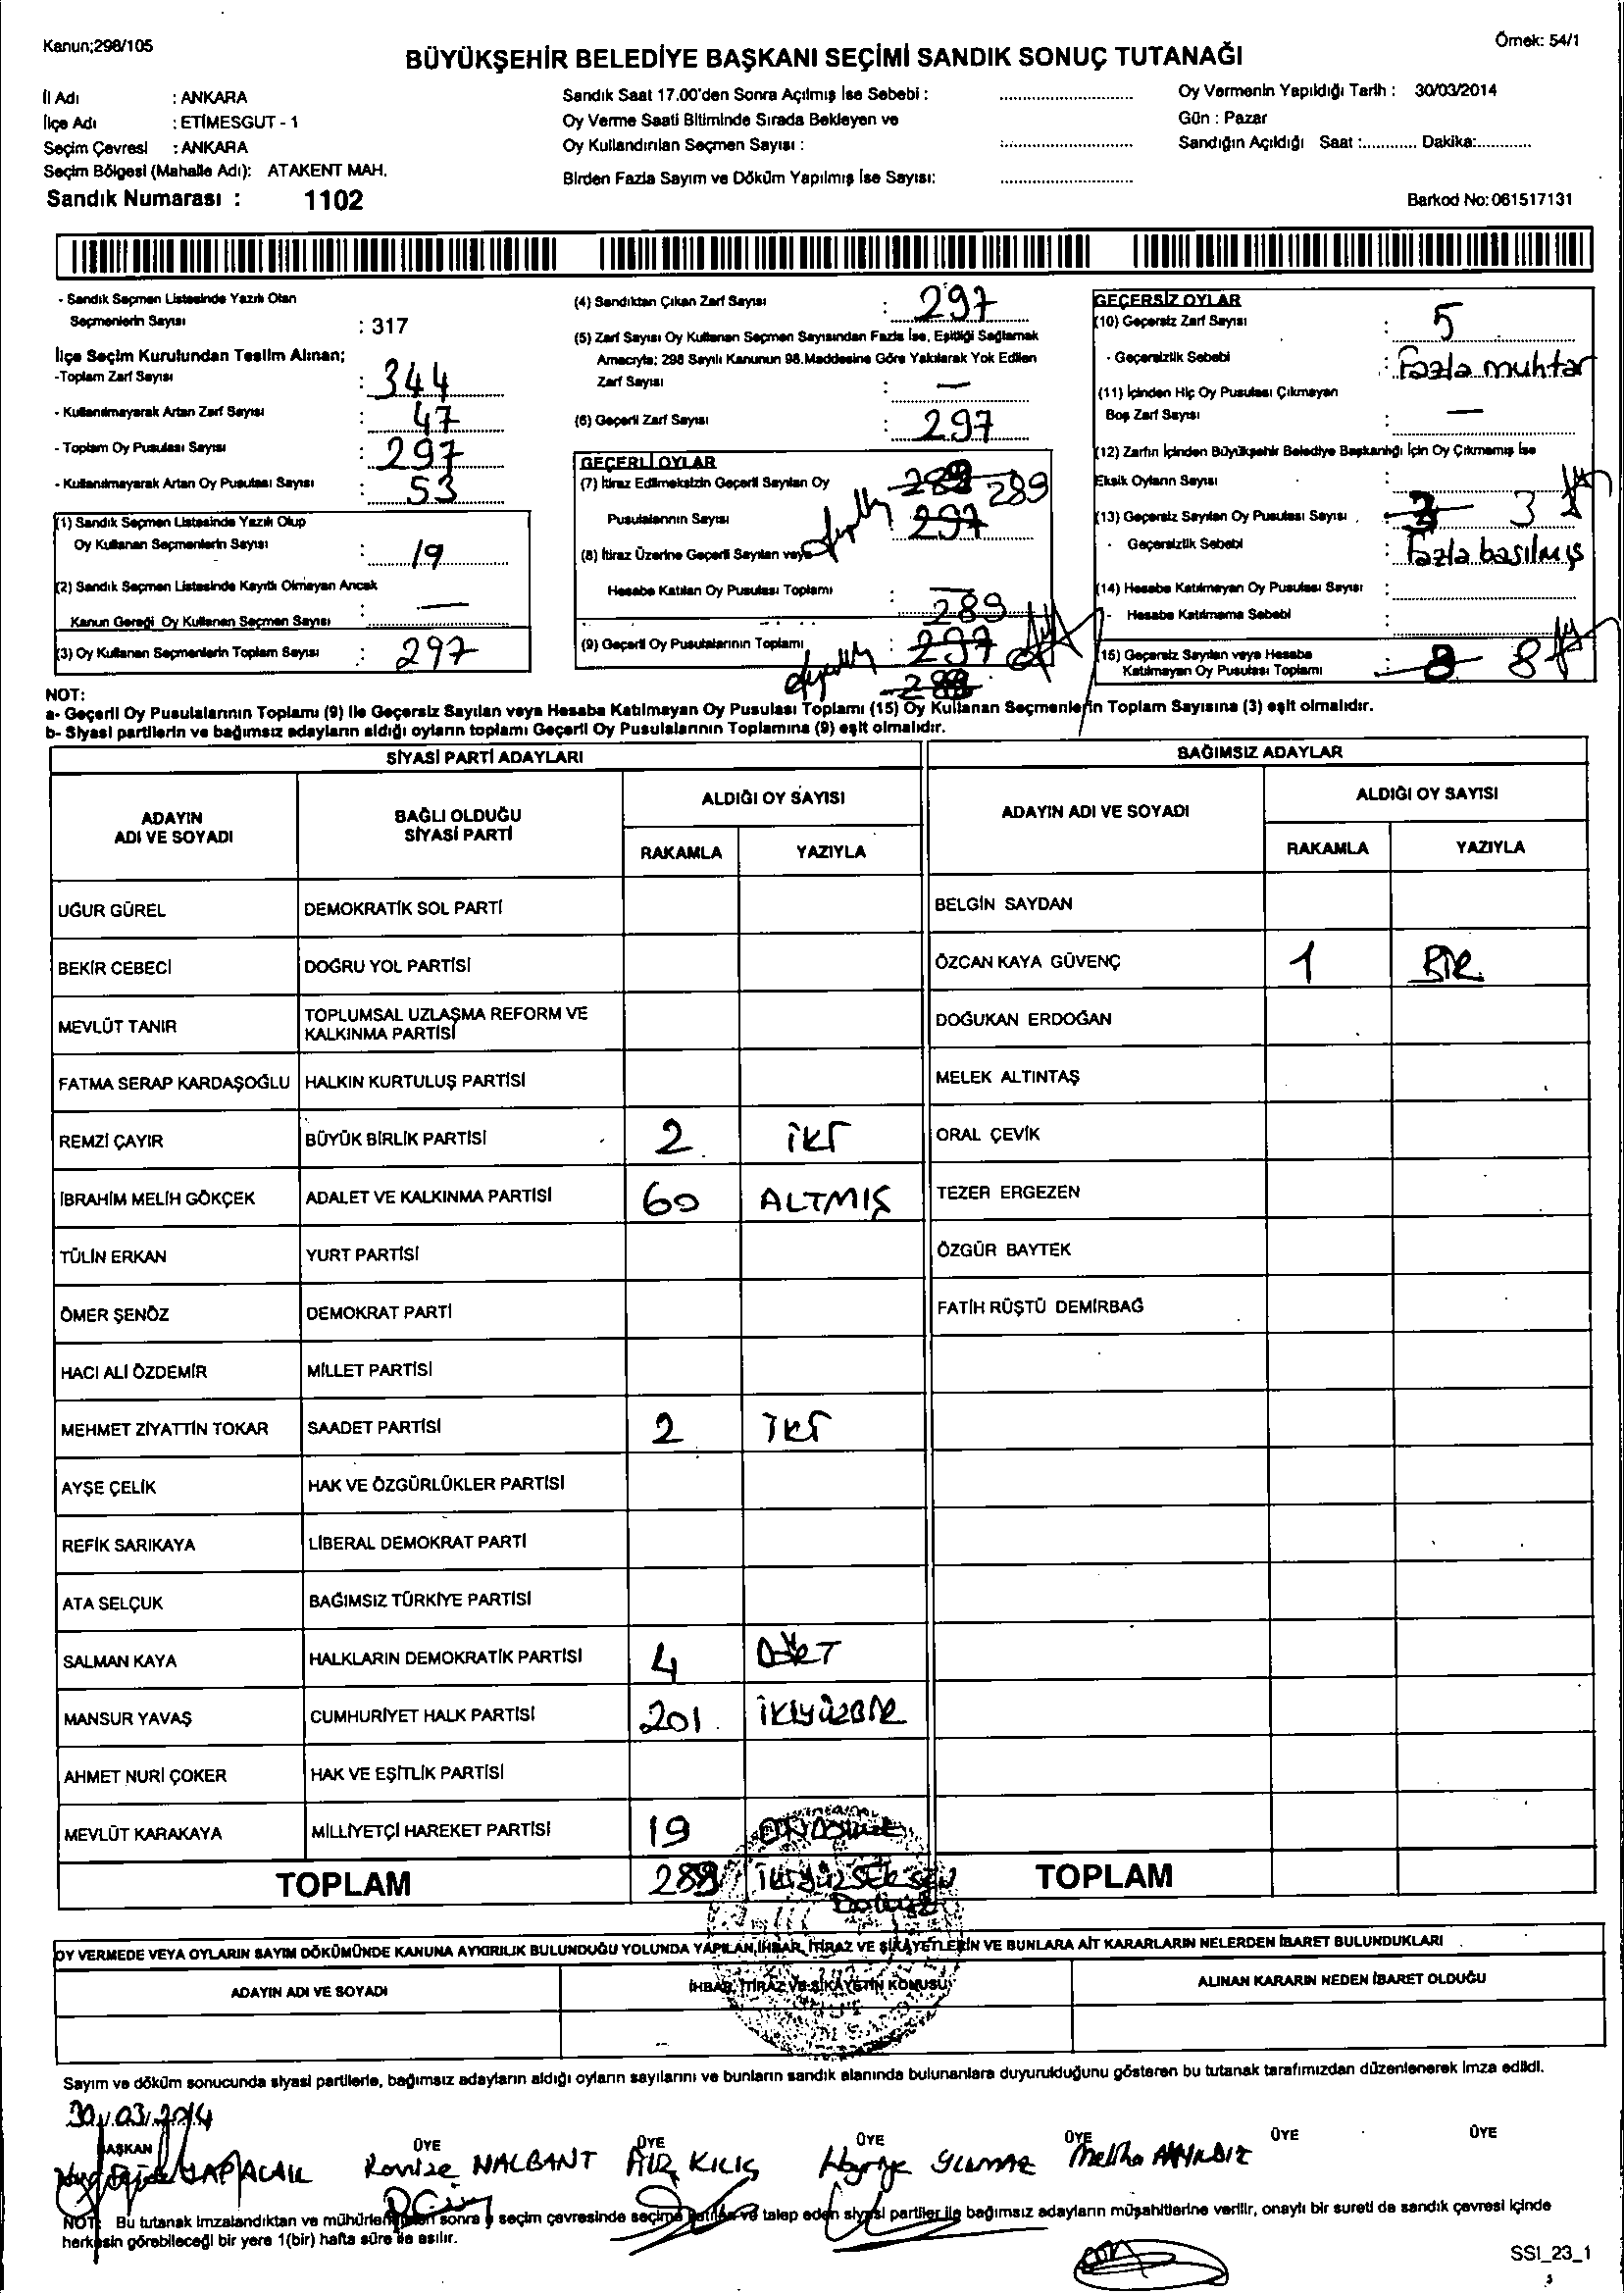 Kanun;298/105
Örnek: 54/1
BÜYÜKŞEHİR BELEDİYE BAŞKANI SEÇİMİ SANDIK SONUÇ TUTANAĞI
İl Adı : ANKARA
İlçe Adı : ETİMESGUT - 1
Seçim Çevresi : ANKARA
Seçim Bölgesi (Mahalle Adı): ATAKENT MAH.
Sandık Numarası : 1102
Sandık Saat 17.00'den Sonra Açılmış İse Sebebi :
Oy Verme Saati Bitiminde Sırada Bekleyen ve
Oy Kullandırılan Seçmen Sayısı :
Birden Fazla Sayım ve Döküm Yapılmış İse Sayısı:
Oy Vermenin Yapıldığı Tarih : 30/03/2014
Gün : Pazar
Sandığın Açıldığı Saat :............ Dakika:............
Barkod No: 061517131
- Sandık Seçmen Listesinde Yazılı Olan
Seçmenlerin Sayısı : 317
İlçe Seçim Kurulundan Teslim Alınan;
-Toplam Zarf Sayısı : 344
- Kullanılmayarak Artan Zarf Sayısı : 47
- Toplam Oy Pusulası Sayısı : 297
- Kullanılmayarak Artan Oy Pusulası Sayısı : 53
(1) Sandık Seçmen Listesinde Yazılı Olup
Oy Kullanan Seçmenlerin Sayısı : 19
(2) Sandık Seçmen Listesinde Kayıtlı Olmayan Ancak
Kanun Gereği Oy Kullanan Seçmen Sayısı : —
(3) Oy Kullanan Seçmenlerin Toplam Sayısı : 297
(4) Sandıktan Çıkan Zarf Sayısı : 297
(5) Zarf Sayısı Oy Kullanan Seçmen Sayısından Fazla İse, Eşitliği Sağlamak
Amacıyla; 298 Sayılı Kanunun 98.Maddesine Göre Yakılarak Yok Edilen
Zarf Sayısı : —
(6) Geçerli Zarf Sayısı : 297
GEÇERLİ OYLAR
(7) İtiraz Edilmeksizin Geçerli Sayılan Oy 289
Pusulalarının Sayısı 297
(8) İtiraz Üzerine Geçerli Sayılan veya
Hesaba Katılan Oy Pusulası Toplamı : —
289
(9) Geçerli Oy Pusulalarının Toplamı : 297
GEÇERSİZ OYLAR
(10) Geçersiz Zarf Sayısı : 5
- Geçersizlik Sebebi : Fazla muhtar
(11) İçinden Hiç Oy Pusulası Çıkmayan
Boş Zarf Sayısı : —
(12) Zarfın İçinden Büyükşehir Belediye Başkanlığı İçin Oy Çıkmamış İse
Eksik Oyların Sayısı :
(13) Geçersiz Sayılan Oy Pusulası Sayısı 3
- Geçersizlik Sebebi : Fazla basılmış
(14) Hesaba Katılmayan Oy Pusulası Sayısı :
- Hesaba Katılmama Sebebi :
(15) Geçersiz Sayılan veya Hesaba
Katılmayan Oy Pusulası Toplamı : 8 8
NOT:
a- Geçerli Oy Pusulalarının Toplamı (9) ile Geçersiz Sayılan veya Hesaba Katılmayan Oy Pusulası Toplamı (15) Oy Kullanan Seçmenlerin Toplam Sayısına (3) eşit olmalıdır.
b- Siyasi partilerin ve bağımsız adayların aldığı oyların toplamı Geçerli Oy Pusulalarının Toplamına (9) eşit olmalıdır.
SİYASİ PARTİ ADAYLARI
BAĞIMSIZ ADAYLAR
ADAYIN ADI VE SOYADI
BAĞLI OLDUĞU SİYASİ PARTİ
ALDIĞI OY SAYISI
RAKAMLA YAZIYLA
ADAYIN ADI VE SOYADI
ALDIĞI OY SAYISI
RAKAMLA YAZIYLA
UĞUR GÜREL DEMOKRATİK SOL PARTİ BELGİN SAYDAN
BEKİR CEBECİ DOĞRU YOL PARTİSİ ÖZCAN KAYA GÜVENÇ 1 BİR
MEVLÜT TANIR TOPLUMSAL UZLAŞMA REFORM VE KALKINMA PARTİSİ DOĞUKAN ERDOĞAN
FATMA SERAP KARDAŞOĞLU HALKIN KURTULUŞ PARTİSİ MELEK ALTINTAŞ
REMZİ ÇAYIR BÜYÜK BİRLİK PARTİSİ 2 İKİ ORAL ÇEVİK
İBRAHİM MELİH GÖKÇEK ADALET VE KALKINMA PARTİSİ 60 ALTMIŞ TEZER ERGEZEN
TÜLİN ERKAN YURT PARTİSİ ÖZGÜR BAYTEK
ÖMER ŞENÖZ DEMOKRAT PARTİ FATİH RÜŞTÜ DEMİRBAĞ
HACI ALİ ÖZDEMİR MİLLET PARTİSİ
MEHMET ZİYATTİN TOKAR SAADET PARTİSİ 2 İKİ
AYŞE ÇELİK HAK VE ÖZGÜRLÜKLER PARTİSİ
REFİK SARIKAYA LİBERAL DEMOKRAT PARTİ
ATA SELÇUK BAĞIMSIZ TÜRKİYE PARTİSİ
SALMAN KAYA HALKLARIN DEMOKRATİK PARTİSİ 4 DÖRT
MANSUR YAVAŞ CUMHURİYET HALK PARTİSİ 201 İKİYÜZBİR
AHMET NURİ ÇOKER HAK VE EŞİTLİK PARTİSİ
MEVLÜT KARAKAYA MİLLİYETÇİ HAREKET PARTİSİ 19 ONDOKUZ
TOPLAM 289 İKİYÜZSEKSEN DOKUZ TOPLAM
OY VERMEDE VEYA OYLARIN SAYIM DÖKÜMÜNDE KANUNA AYKIRILIK BULUNDUĞU YOLUNDA YAPILAN İHBAR, İTİRAZ VE ŞİKAYETLERİN VE BUNLARA AİT KARARLARIN NELERDEN İBARET BULUNDUKLARI
ADAYIN ADI VE SOYADI İHBAR, İTİRAZ VE ŞİKAYETİN KONUSU ALINAN KARARIN NEDEN İBARET OLDUĞU
Sayım ve döküm sonucunda siyasi partilerle, bağımsız adayların aldığı oyların sayılarını ve bunların sandık alanında bulunanlara duyurulduğunu gösteren bu tutanak tarafımızdan düzenlenerek imza edildi.
30/03/2014
BAŞKAN ÜYE ÜYE ÜYE ÜYE ÜYE ÜYE
NALBANT KILIÇ YILMAZ Meliha
NOT: Bu tutanak imzalandıktan ve mühürlendikten sonra seçim çevresinde seçime katılan ve talep eden siyasi partiler ile bağımsız adayların müşahitlerine verilir, onaylı bir sureti de sandık çevresi içinde
herkesin görebileceği bir yere 1(bir) hafta süre ile asılır.
SSI_23_1